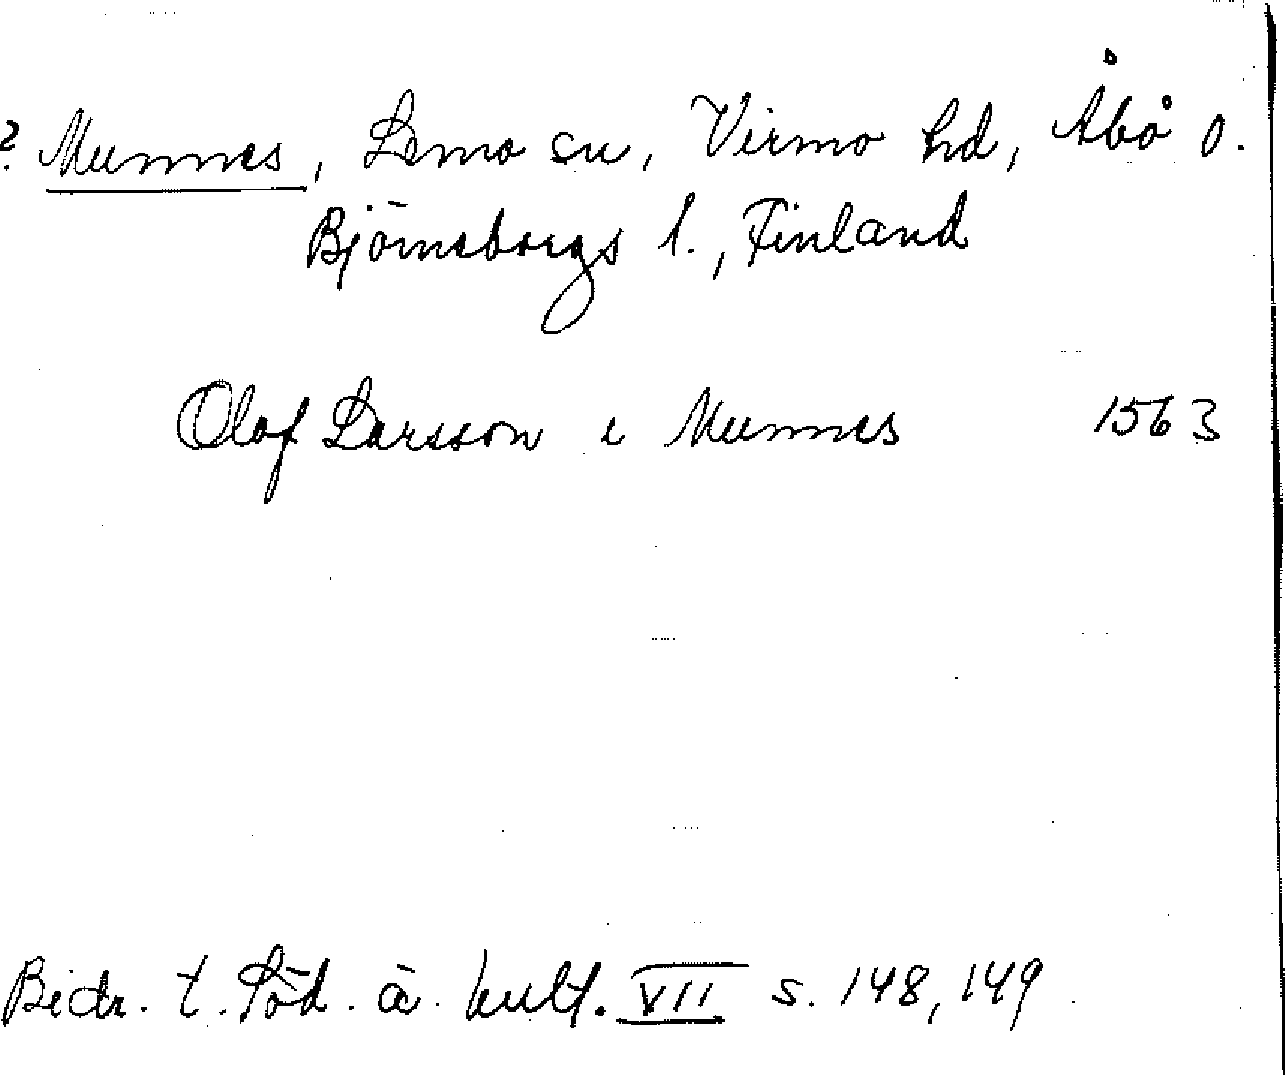 ? Munnes, Lemo sn, Virmo hd, Åbo o.
Björneborgs l., Finland
Olof Larsson i Munnes 1563
Bidr. t. Söd. ä. kult. VII s. 148, 149